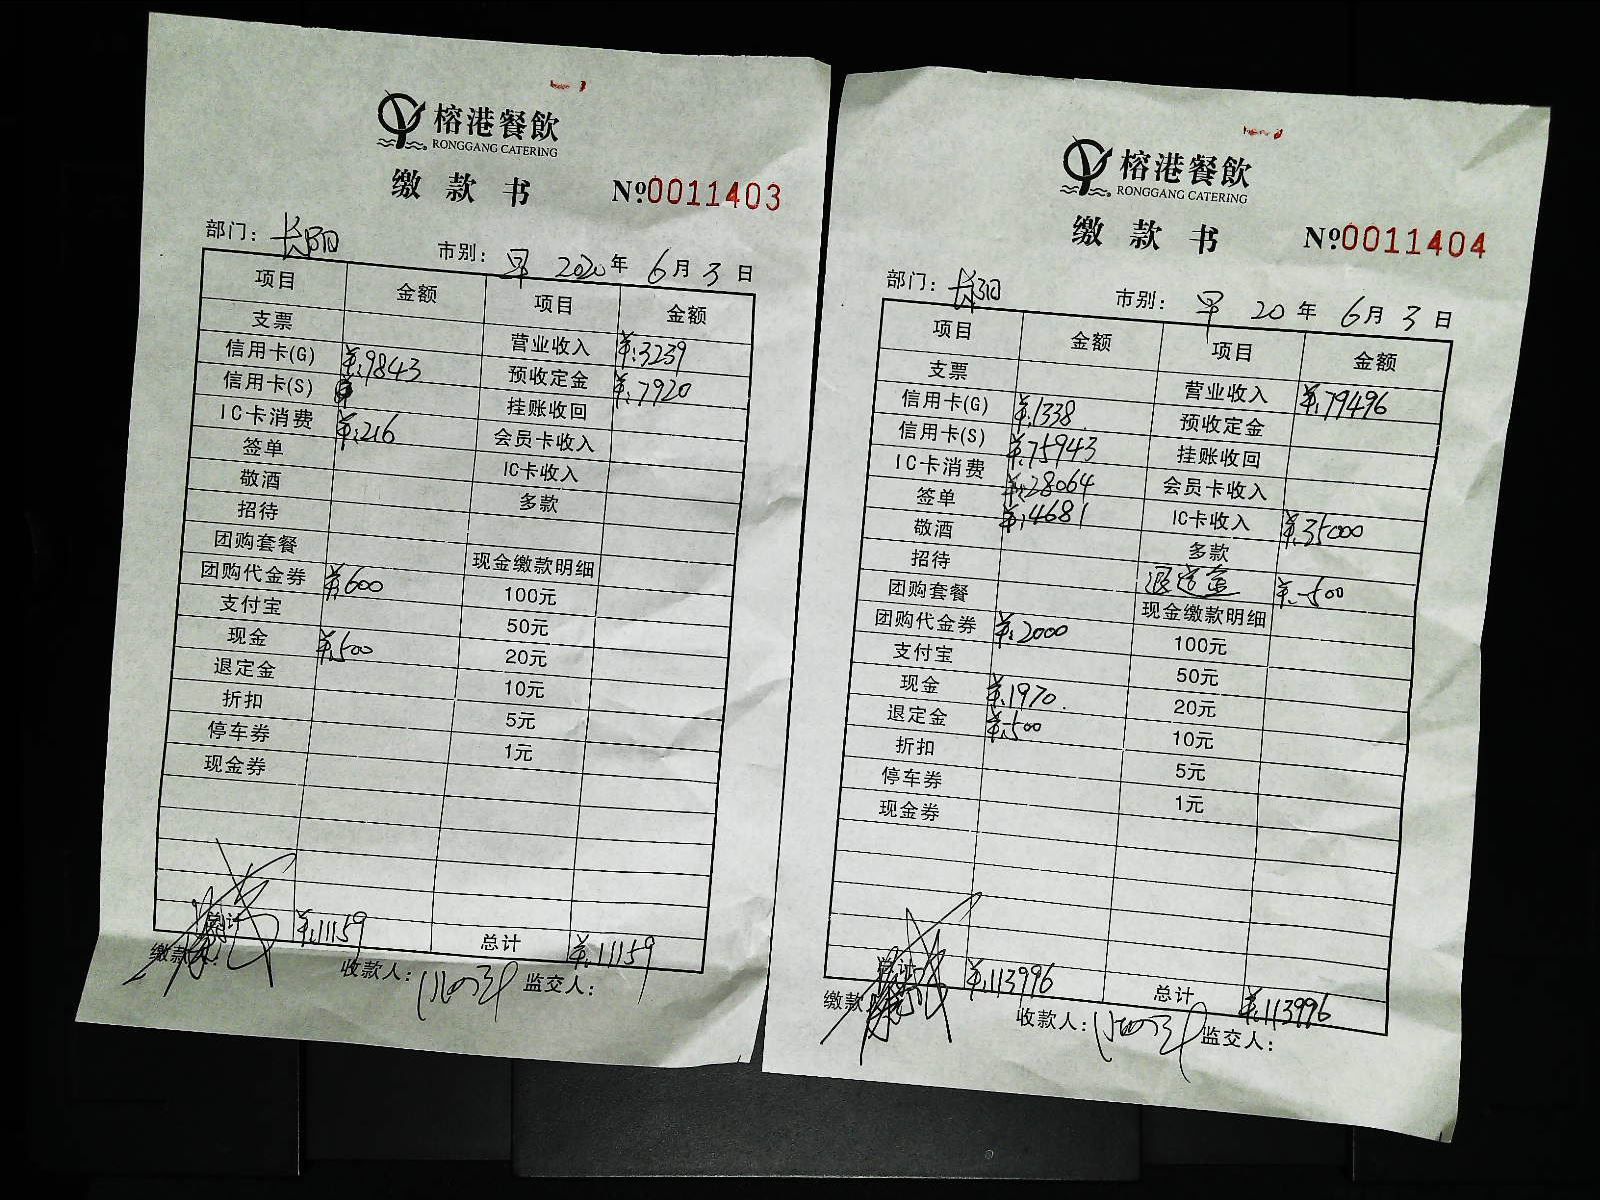 榕港餐飲
RONGGANG CATERING
缴款书 №0011403
部门：长阳 市别：早 2020年6月3日
项目 金额 项目 金额
支票 营业收入 ¥:3239
信用卡(G) ¥:9843 预收定金 ¥:7920
信用卡(S) 挂账收回
IC卡消费 ¥:216 会员卡收入
签单 IC卡收入
敬酒 多款
招待
团购套餐 现金缴款明细
团购代金券 ¥:600 100元
支付宝 50元
现金 ¥:500 20元
退定金 10元
折扣 5元
停车券 1元
现金券
总计 ¥:11159 总计 ¥:11159
缴款人： 收款人： 监交人：
榕港餐飲
RONGGANG CATERING
缴款书 №0011404
部门：长阳 市别：早 20年6月3日
项目 金额 项目 金额
支票 营业收入 ¥:79496
信用卡(G) ¥:1338 预收定金
信用卡(S) ¥:75943 挂账收回
IC卡消费 ¥:28064 会员卡收入
签单 ¥:4681 IC卡收入 ¥:35000
敬酒 多款
招待 退定金 ¥:-500
团购套餐 现金缴款明细
团购代金券 ¥:2000 100元
支付宝 50元
现金 ¥:1970 20元
退定金 ¥:500 10元
折扣 5元
停车券 1元
现金券
总计 ¥:113996 总计 ¥:113996
缴款 收款人： 监交人：